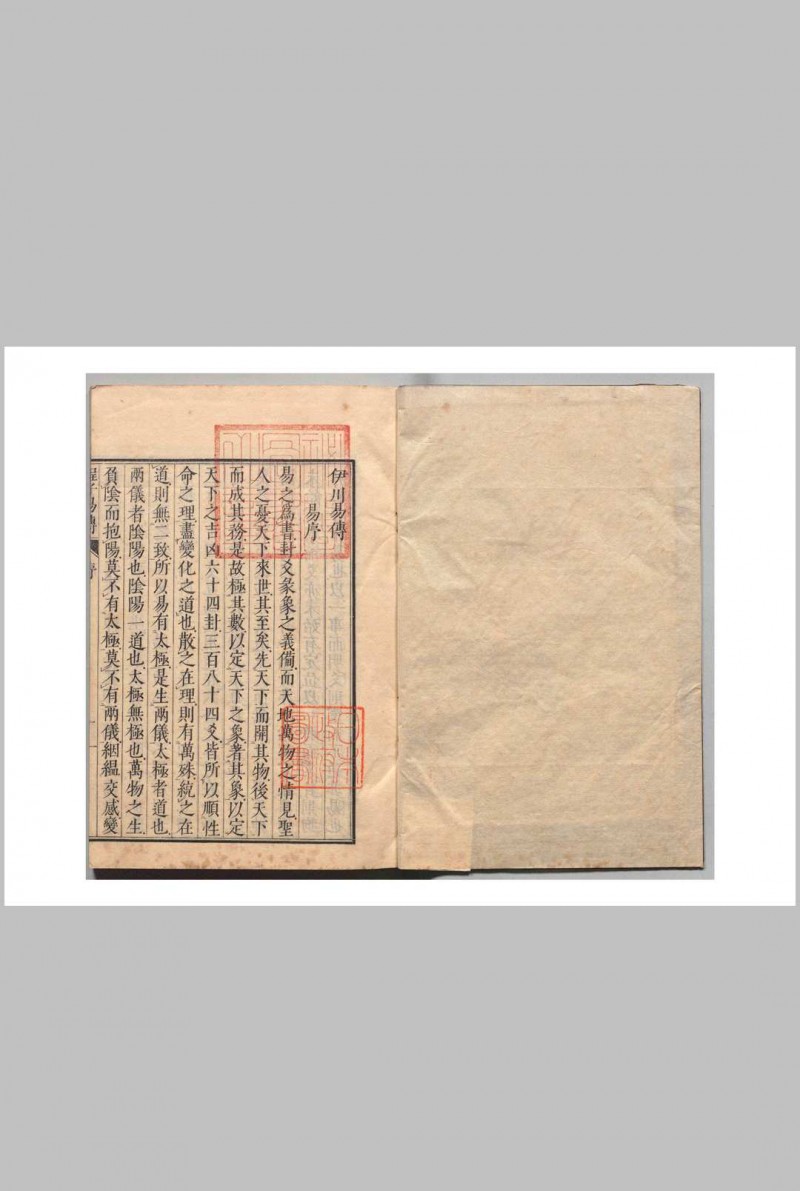 伊川易傳
易序
易之爲書卦爻彖象之義備而天地萬物之情見聖
人之憂天下來世其至矣先天下而開其物後天下
而成其務是故極其數以定天下之象著其象以定
天下之吉凶六十四卦三百八十四爻皆所以順性
命之理盡變化之道也散之在理則有萬殊統之在
道則無二致所以易有太極是生兩儀太極者道也
兩儀者陰陽也陰陽一道也太極無極也萬物之生
負陰而抱陽莫不有太極莫不有兩儀絪縕交感變
程子易傳 序 一